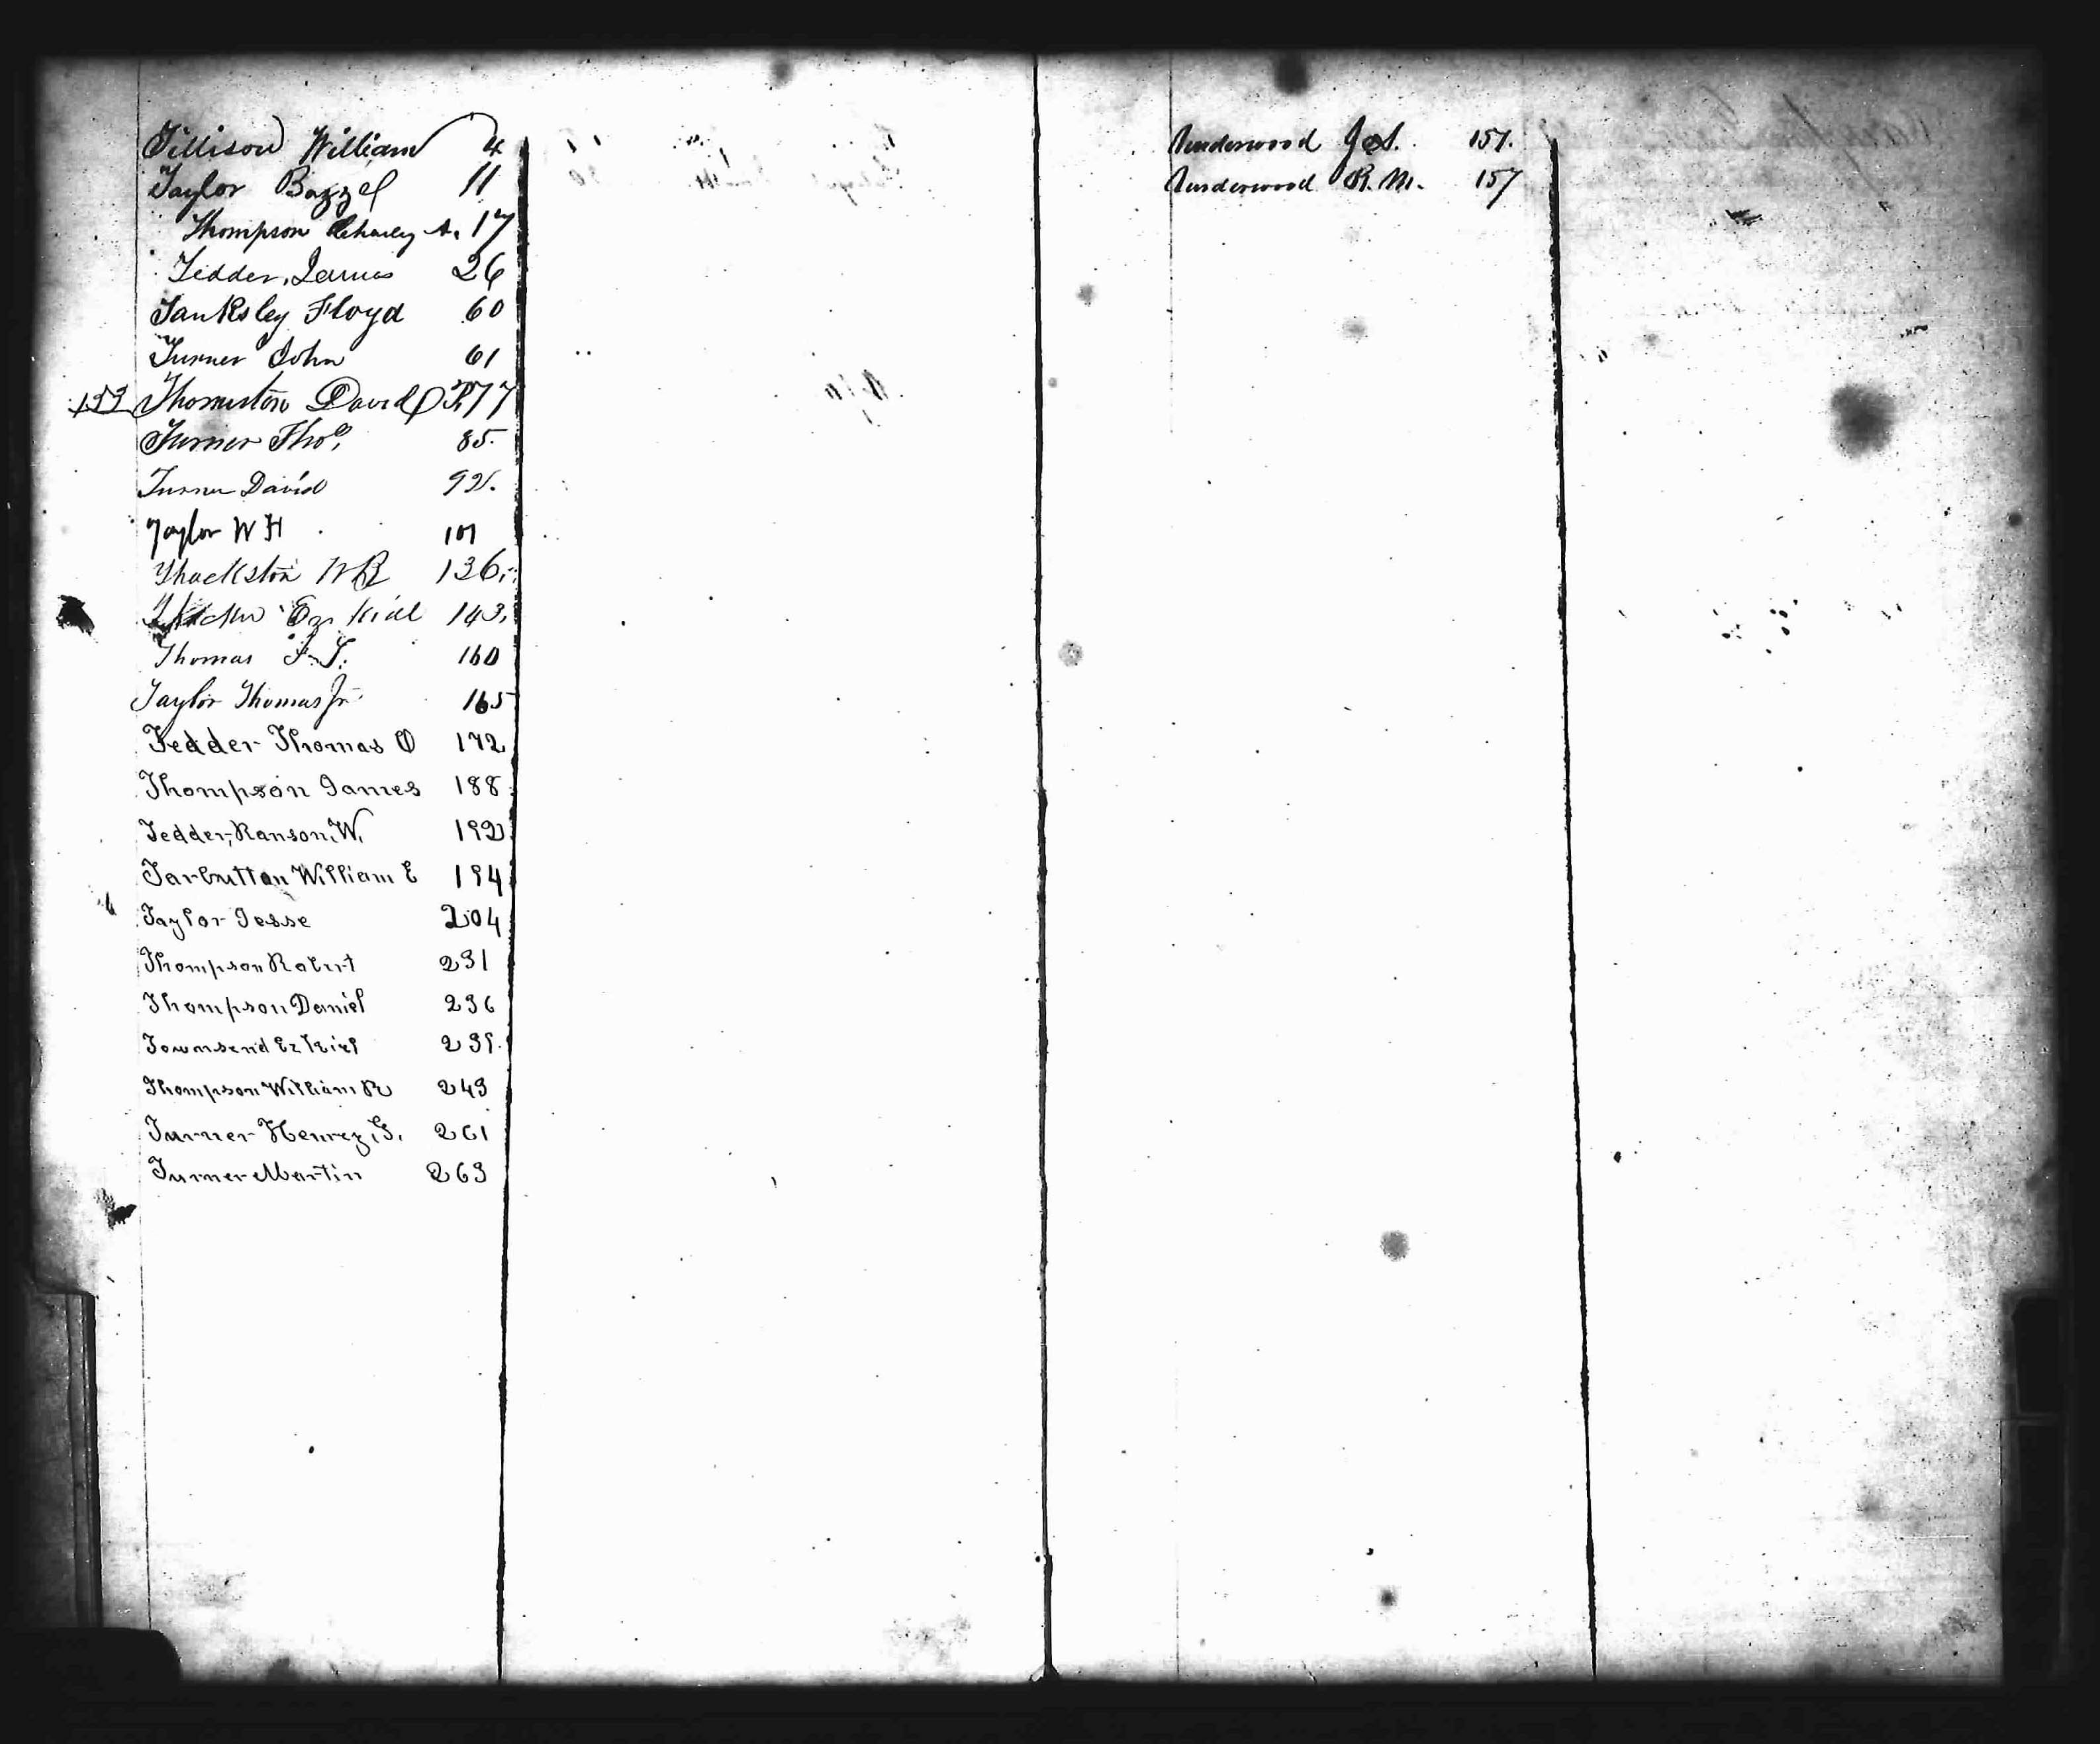 Tillison William 4
Taylor Bazzel 11
Thompson Charley A. 17
Tedder, James 26
Tanksley Floyd 60
Turner John 61
133 Thomaston David R 77
Turner Tho^s. 85.
Turner David 92.
Taylor W H 107
Thackston W B 136.
Ezekiel 143.
Thomas J. T. 160
Taylor Thomas Jr 165
Tedder Thomas O 172
Thompson James 188
Tedder, Ranson, W. 192
Tarbutton William E 194
Taylor Jesse 204
Thompson Robert 231
Thompson Daniel 236
Townsend Ezkiel 239.
Thompson William R 243
Turner Henry, G. 261
Turner Martin 263
Underwood J. A. 157.
Underwood R. M. 157